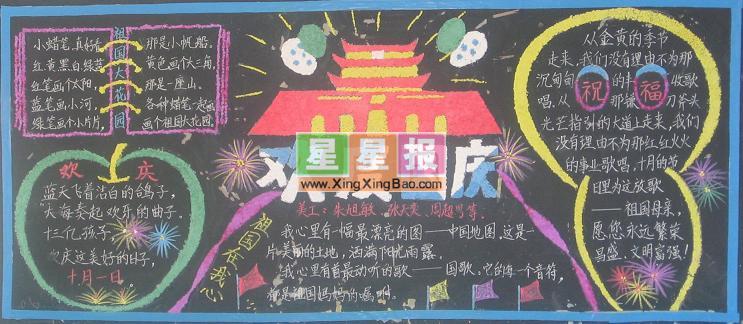 祖国大花园
小蜡笔,真好看
红黄黑白绿蓝
红笔画个太阳,
蓝笔画小河,
绿笔画个小片片,
那是小帆船。
黄色画个大三角,
那是一座山。
各种蜡笔一起画
画个祖国大花园。
欢 庆
蓝天飞着洁白的鸽子,
大海奏起欢乐的曲子,
十三亿孩子
欢庆这美好的日子,
十月一日。
星星报
www.XingXingBao.com
欢 国庆
美工:朱旭敏
祖国在我心
我心里有一幅最漂亮的图——中国地图,这是
片美丽的土地,洒满阳光雨露。
我心里有首最动听的歌——国歌,它的每一个音符,
都是祖国妈妈的嘱咐。
祝 福
从金黄的季节
走来,我们没有理由不为那
沉甸甸的丰收歌
唱,从那镰刀斧头
光芒指引的大道上走来,我们
没有理由不为那红红火火
的事业歌唱,十月的节
日里为这放歌
——祖国母亲,
愿您永远繁荣
昌盛、文明富强!